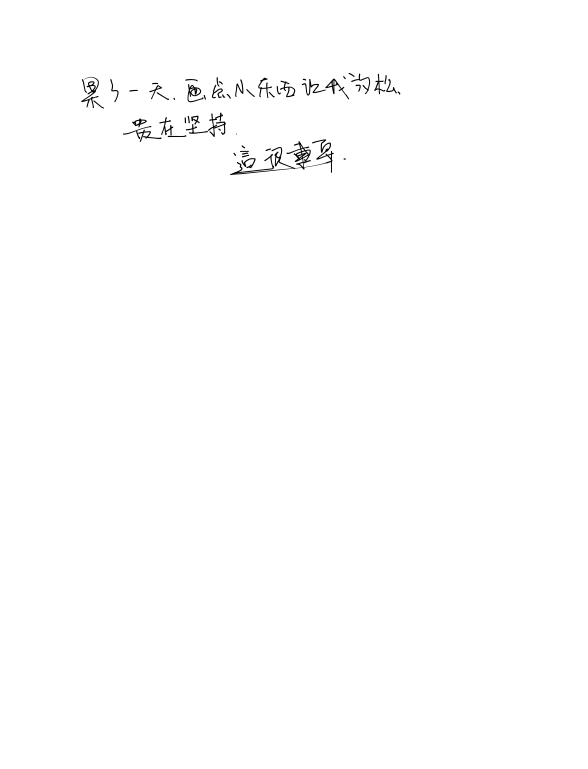 累了一天.画点小东西让我放松.
贵在坚持.
這很重要.